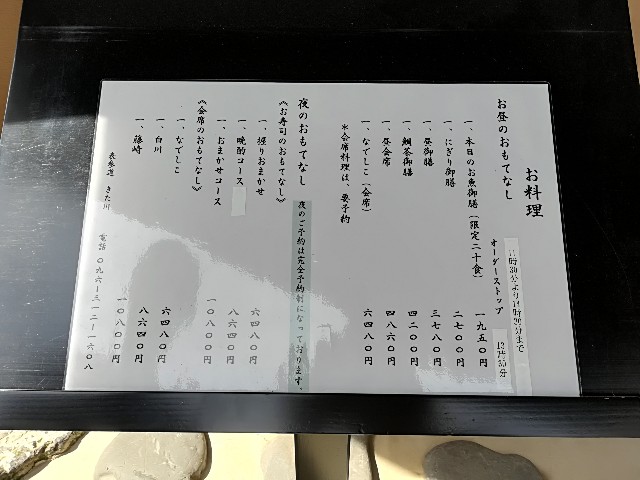 お料理
お昼のおもてなし
11時30分より14時30分まで
オーダーストップ 13時30分
一、本日のお魚御膳(限定二十食) 一九五〇円
一、にぎり御膳 二七〇〇円
一、昼御膳 三七八〇円
一、鯛茶御膳 四二〇〇円
一、昼会席 四八六〇円
一、なでしこ(会席) 六四八〇円
*会席料理は、要予約
夜のおもてなし 夜のご予約は完全予約制になっております。
《お寿司のおもてなし》
一、握りおまかせ 六四八〇円
一、晩酌コース 八六四〇円
一、おまかせコース 一〇八〇〇円
《会席のおもてなし》
一、なでしこ 六四八〇円
一、白川 八六四〇円
一、藤崎 一〇八〇〇円
表参道 きた川 電話 〇九六-三一二-一六〇八